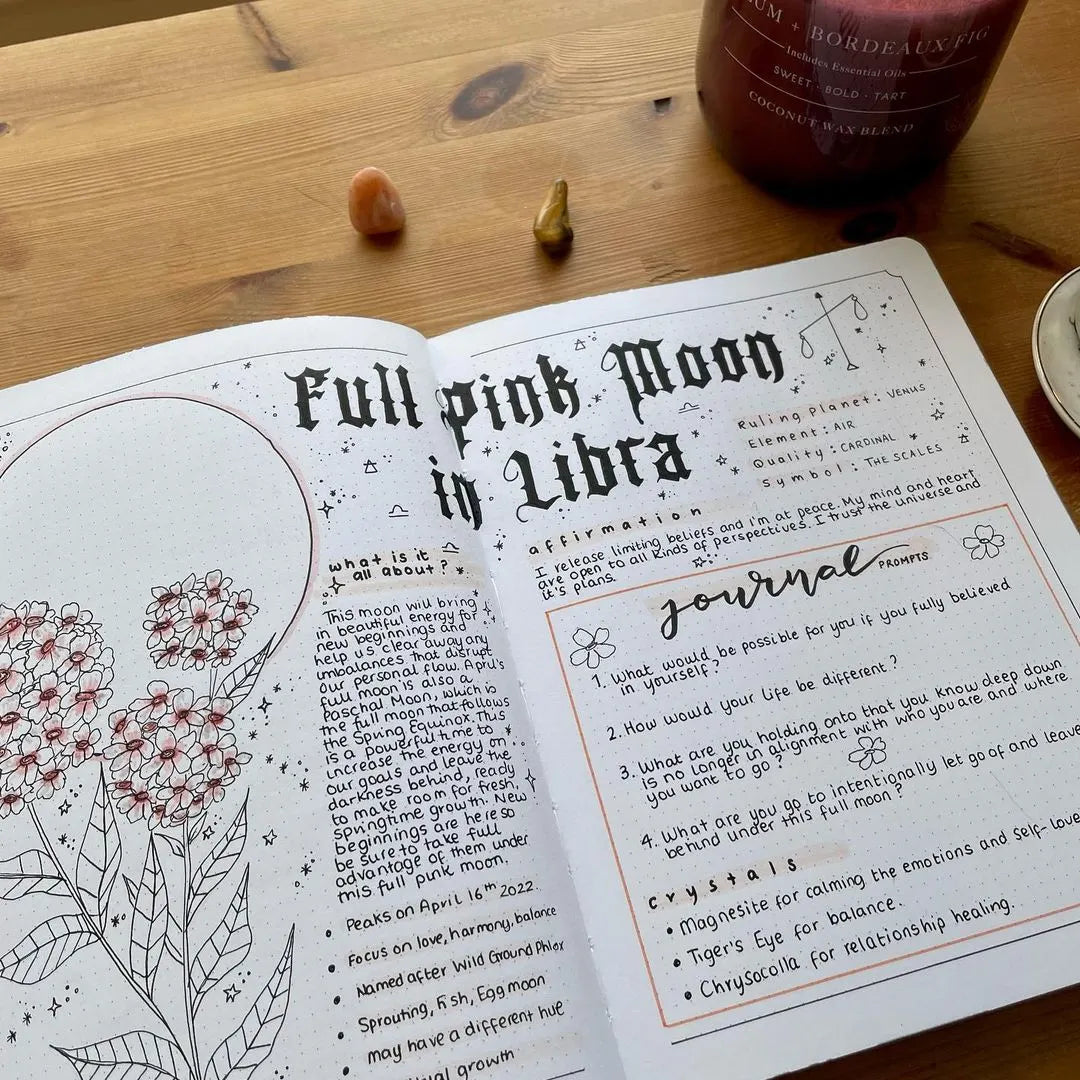 + BORDEAUX FIG
Includes Essential Oils
SWEET · BOLD · TART
COCONUT WAX BLEND
Full Pink Moon
in Libra
Ruling Planet: VENUS
Element: AIR
Quality: CARDINAL
Symbol: THE SCALES
what is it
all about?
This moon will bring
in beautiful energy for
new beginnings and
help us clear away any
imbalances that disrupt
our personal flow. April's
full moon is also a
Paschal Moon, which is
the full moon that follows
the Spring Equinox. This
is a powerful time to
increase the energy on
our goals and leave the
darkness behind, ready
to make room for fresh,
springtime growth. New
beginnings are here so
be sure to take full
advantage of them under
this full pink moon.
• Peaks on April 16th 2022.
• Focus on love, harmony, balance
• Named after Wild Ground Phlox
• Sprouting, Fish, Egg moon
• may have a different hue
growth
affirmation
I release limiting beliefs and i'm at peace. My mind and heart
are open to all kinds of perspectives. I trust the universe and
it's plans.
journal PROMPTS
1. What would be possible for you if you fully believed
in yourself?
2. How would your life be different?
3. What are you holding onto that you know deep down
is no longer in alignment with who you are and where
you want to go?
4. What are you go to intentionally let go of and leave
behind under this full moon?
crystals
• Magnesite for calming the emotions and self-love
• Tiger's Eye for balance.
• Chrysocolla for relationship healing.